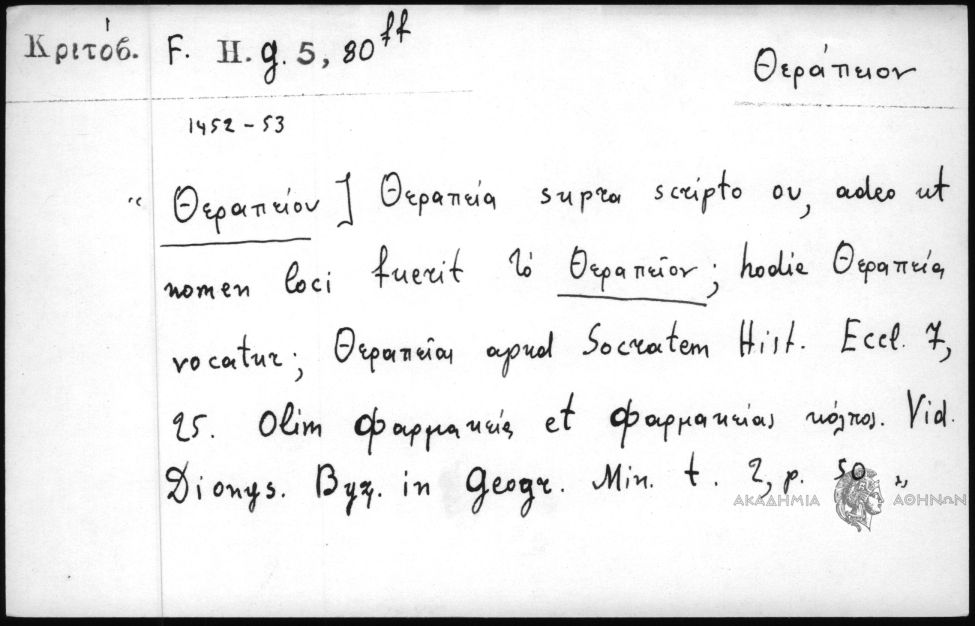 Κριτόβ. F. H. g. 5, 80 ff
Θεράπειον
1452-53
"Θεραπείου] Θεραπεία supra scripto ου, adeo ut
nomen loci fuerit τὸ Θεραπεῖον; hodie Θεραπεία
vocatur; Θεραπεῖαι apud Socratem Hist. Eccl. 7,
25. Olim Φαρμακεία et Φαρμακείας κόλπος. Vid.
Dionys. Byz. in Geogr. Min. t. 2, p. 50 "
ΑΚΑΔΗΜΙΑ ΑΘΗΝΩΝ